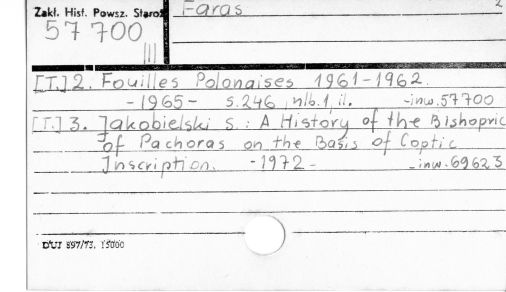 Zakł. Hist. Powsz. Staroż
Faras
2
57 700
III
[T.] 2. Fouilles Polonaises 1961-1962.
-1965- s.246, nlb.1, il. -inw.57700
[T.] 3. Jakobielski S.: A History of the Bishopric
of Pachoras on the Basis of Coptic
Inscription. -1972- -inw.69623
DUJ 897/73. 15000